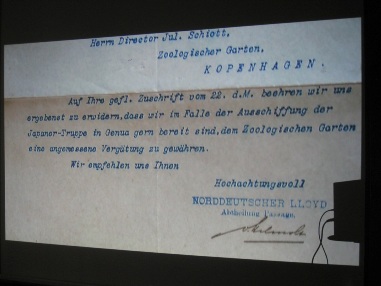 Herrn Director Jul. Schiött.
Zoologischer Garten.
KOPENHAGEN.
Auf Ihre gefl. Zuschrift vom 22. d.M. beehren wir uns
ergebenst zu erwidern, dass wir im Falle der Ausschiffung der
Japaner-Truppe in Genua gern bereit sind, den Zoologischen Garten
eine angemessene Vergütung zu gewähren.
Wir empfehlen uns Ihnen
Hochachtungsvoll
NORDDEUTSCHER LLOYD
Abtheilung Passage.